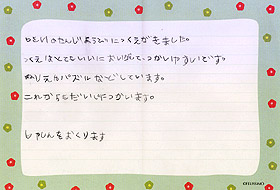 のたんじょうびにつくえがきました。
つくえはとてもいいにおいがして、つかいやすいです。
ぬりえやパズルなどしています。
これからもだいじにつかいます。
しゃしんをおくります